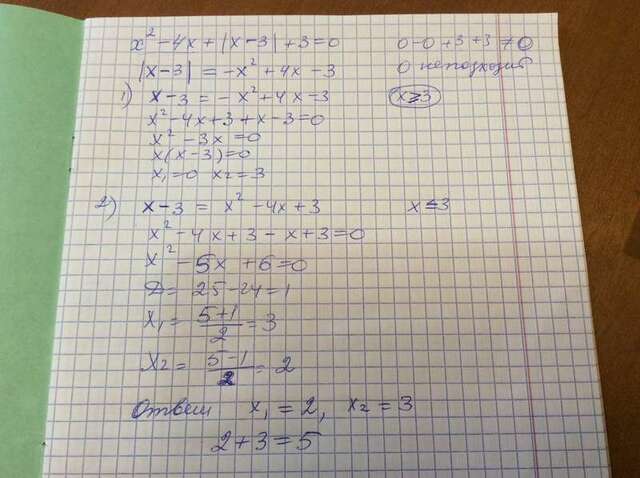 x² - 4x + |x - 3| + 3 = 0
0 - 0 + 3 + 3 ≠ 0
|x - 3| = -x² + 4x - 3
0 неподходит
1) x - 3 = -x² + 4x - 3
x ≥ 3
x² - 4x + 3 + x - 3 = 0
x² - 3x = 0
x(x - 3) = 0
x₁ = 0 x₂ = 3
2) x - 3 = x² - 4x + 3
x ≤ 3
x² - 4x + 3 - x + 3 = 0
x² - 5x + 6 = 0
D = 25 - 24 = 1
x₁ = (5+1)/2 = 3
x₂ = (5-1)/2 = 2
Ответ x₁ = 2, x₂ = 3
2 + 3 = 5